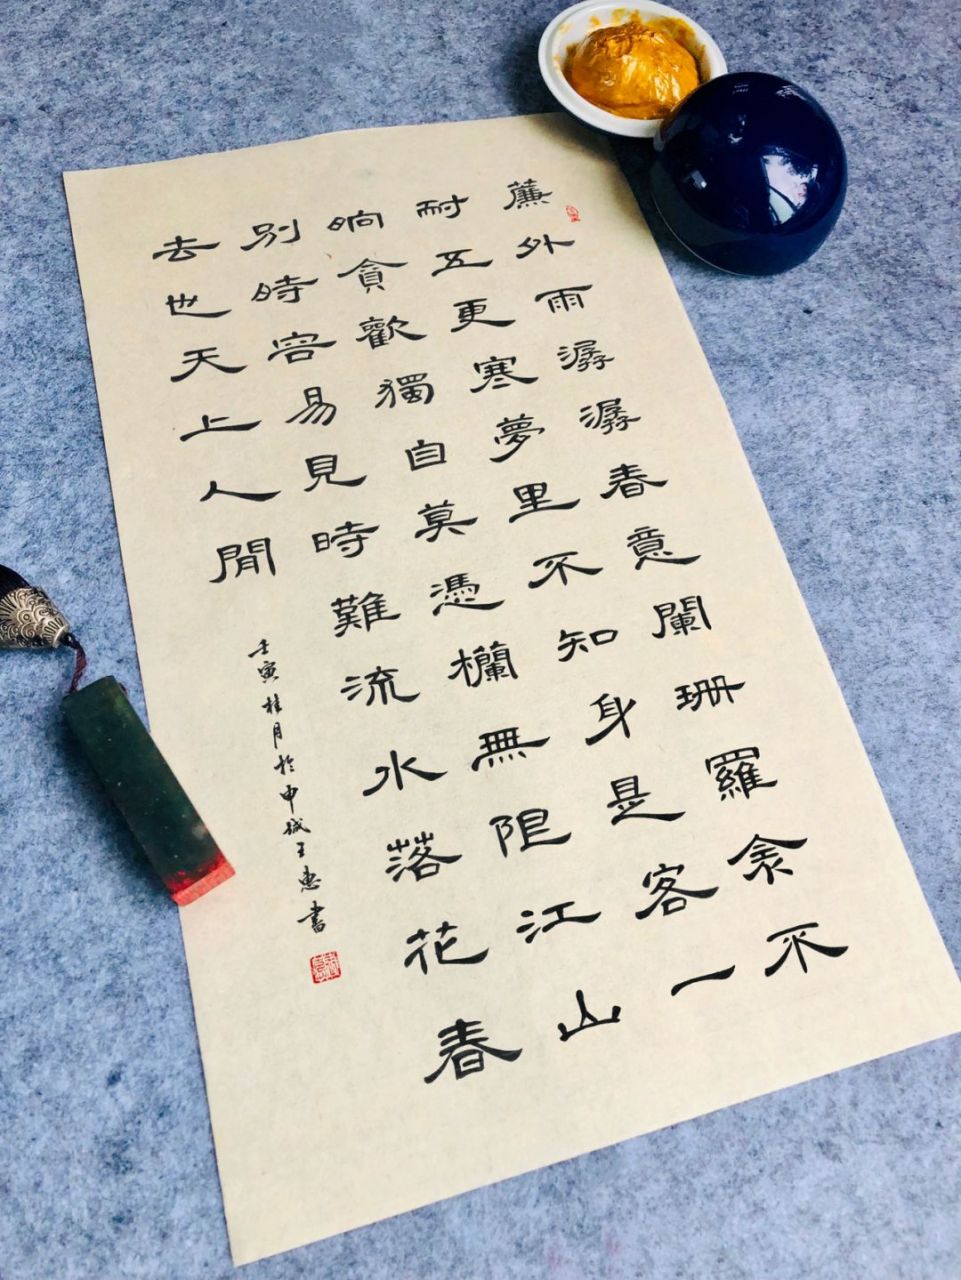 簾外雨潺潺春意闌珊羅衾不
耐五更寒夢里不知身是客一
晌貪歡獨自莫憑欄無限江山
別時容易見時難流水落花春
去也天上人間
壬寅桂月於申城王惠書